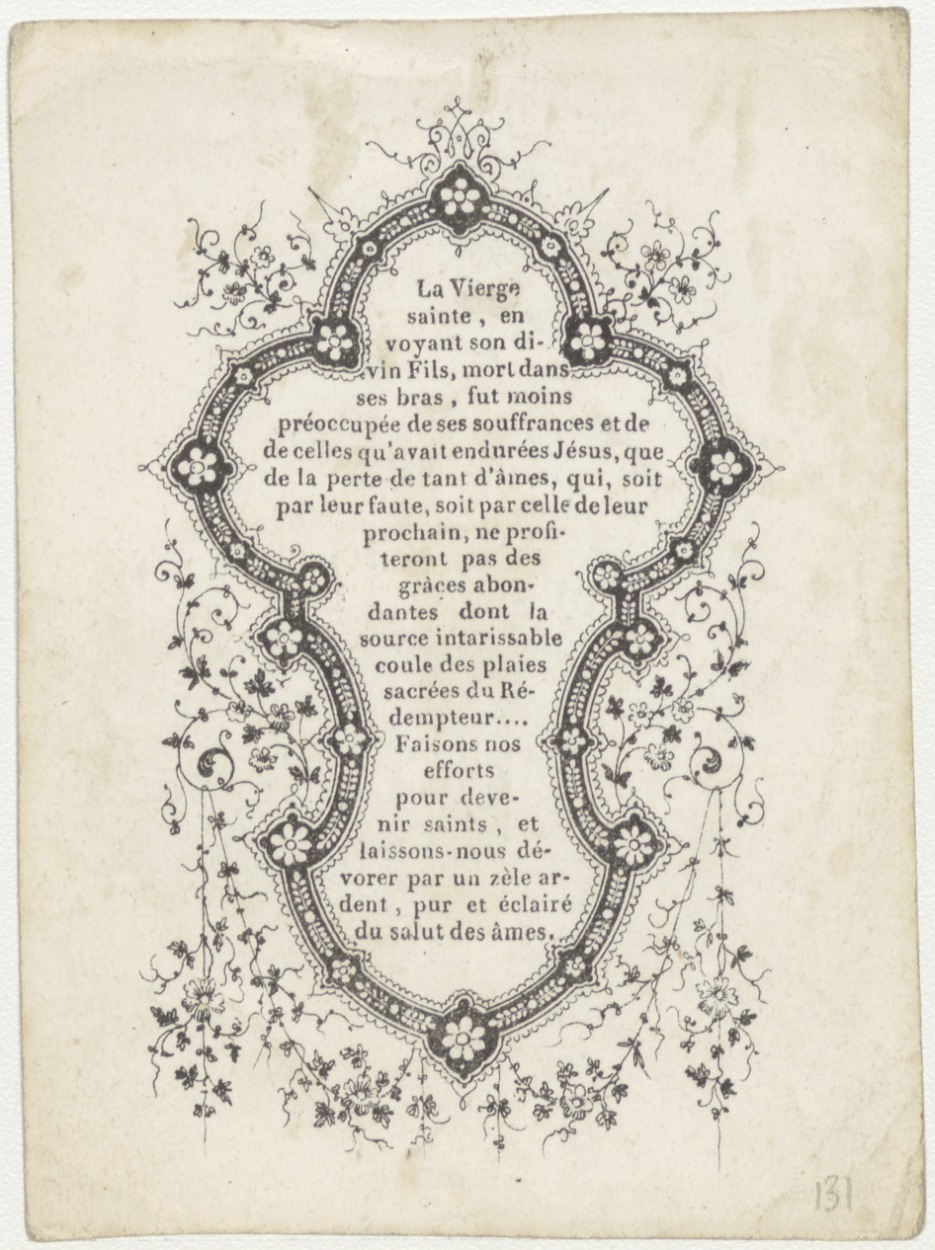 La Vierge
sainte, en
voyant son di-
vin Fils, mort dans
ses bras, fut moins
préoccupée de ses souffrances et de
de celles qu'avait endurées Jésus, que
de la perte de tant d'âmes, qui, soit
par leur faute, soit par celle de leur
prochain, ne profi-
teront pas des
grâces abon-
dantes dont la
source intarissable
coule des plaies
sacrées du Ré-
dempteur....
Faisons nos
efforts
pour deve-
nir saints, et
laissons-nous dé-
vorer par un zèle ar-
dent, pur et éclairé
du salut des âmes.
131